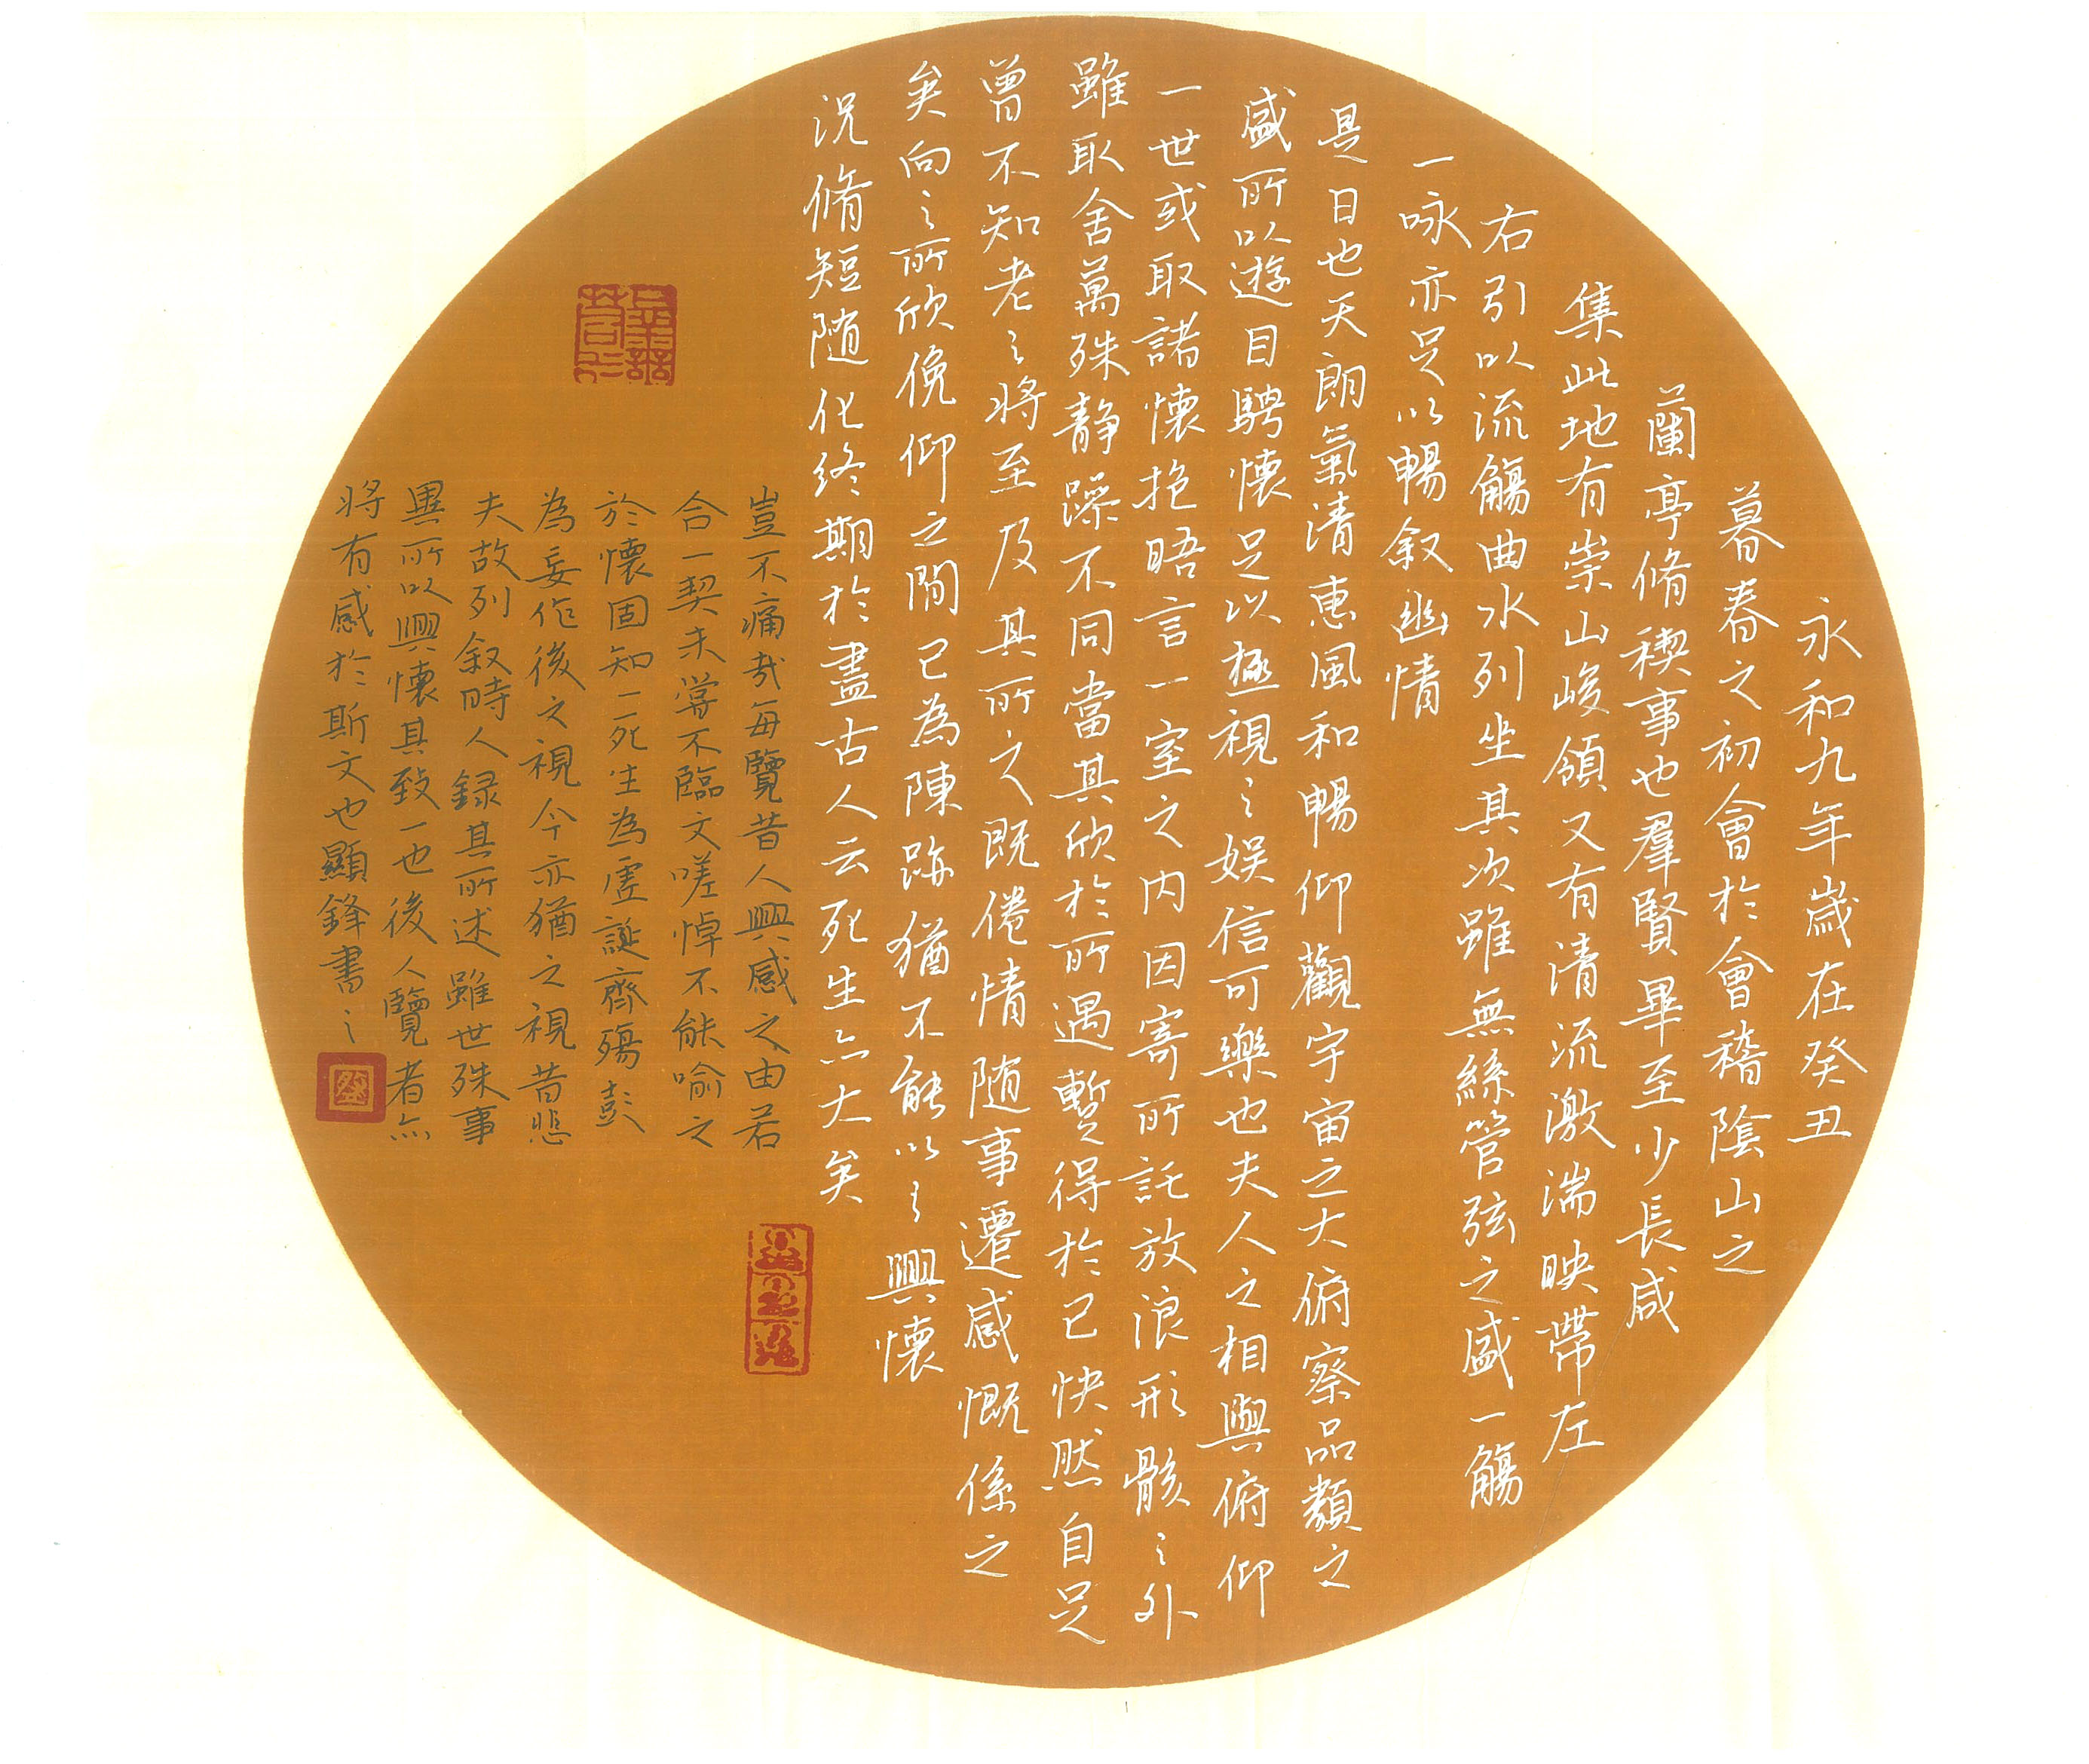 永和九年歲在癸丑
暮春之初會於會稽陰山之
蘭亭脩稧事也羣賢畢至少長咸
集此地有崇山峻領又有清流激湍映帶左
右引以流觴曲水列坐其次雖無絲管弦之盛一觴
一咏亦足以暢叙幽情
是日也天朗氣清惠風和暢仰觀宇宙之大俯察品類之
盛所以遊目騁懷足以極視之娱信可樂也夫人之相與俯仰
一世或取諸懷抱晤言一室之内因寄所託放浪形骸之外
雖取舍萬殊静躁不同當其欣於所遇暫得於己快然自足
曾不知老之將至及其所之既倦情隨事遷感慨係之
矣向之所欣俛仰之間已為陳跡猶不能以之興懷
況脩短隨化終期於盡古人云死生亦大矣
豈不痛哉每覽昔人興感之由若
合一契未嘗不臨文嗟悼不能喻之
於懷固知一死生為虚誕齊殤彭
為妄作後之視今亦猶之視昔悲
夫故列叙時人録其所述雖世殊事
異所以興懷其致一也後人覽者亦
将有感於斯文也顯鋒書之